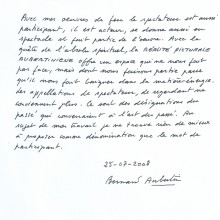 Avec mes oeuvres de feu le spectateur est aussi
participant, il est acteur, se donne ainsi en
spectacle et fait partie de l'œuvre. Avec la
quête de l'absolu spirituel, la RÉALITÉ PICTURALE
AUBERTINIENNE offre un espace qui ne nous fait
pas face, mais dont nous faisons partie parce
qu'il nous fait baigner dans la matière-énergie.
Les appellations de spectateur, de regardant ne
conviennent plus. Ce sont des désignations du
passé qui convenaient à l'art du passé. Au
sujet de mon travail je ne trouve rien de mieux
à proposer comme dénomination que le mot de
participant.
25-07-2008
Bernard Aubertin